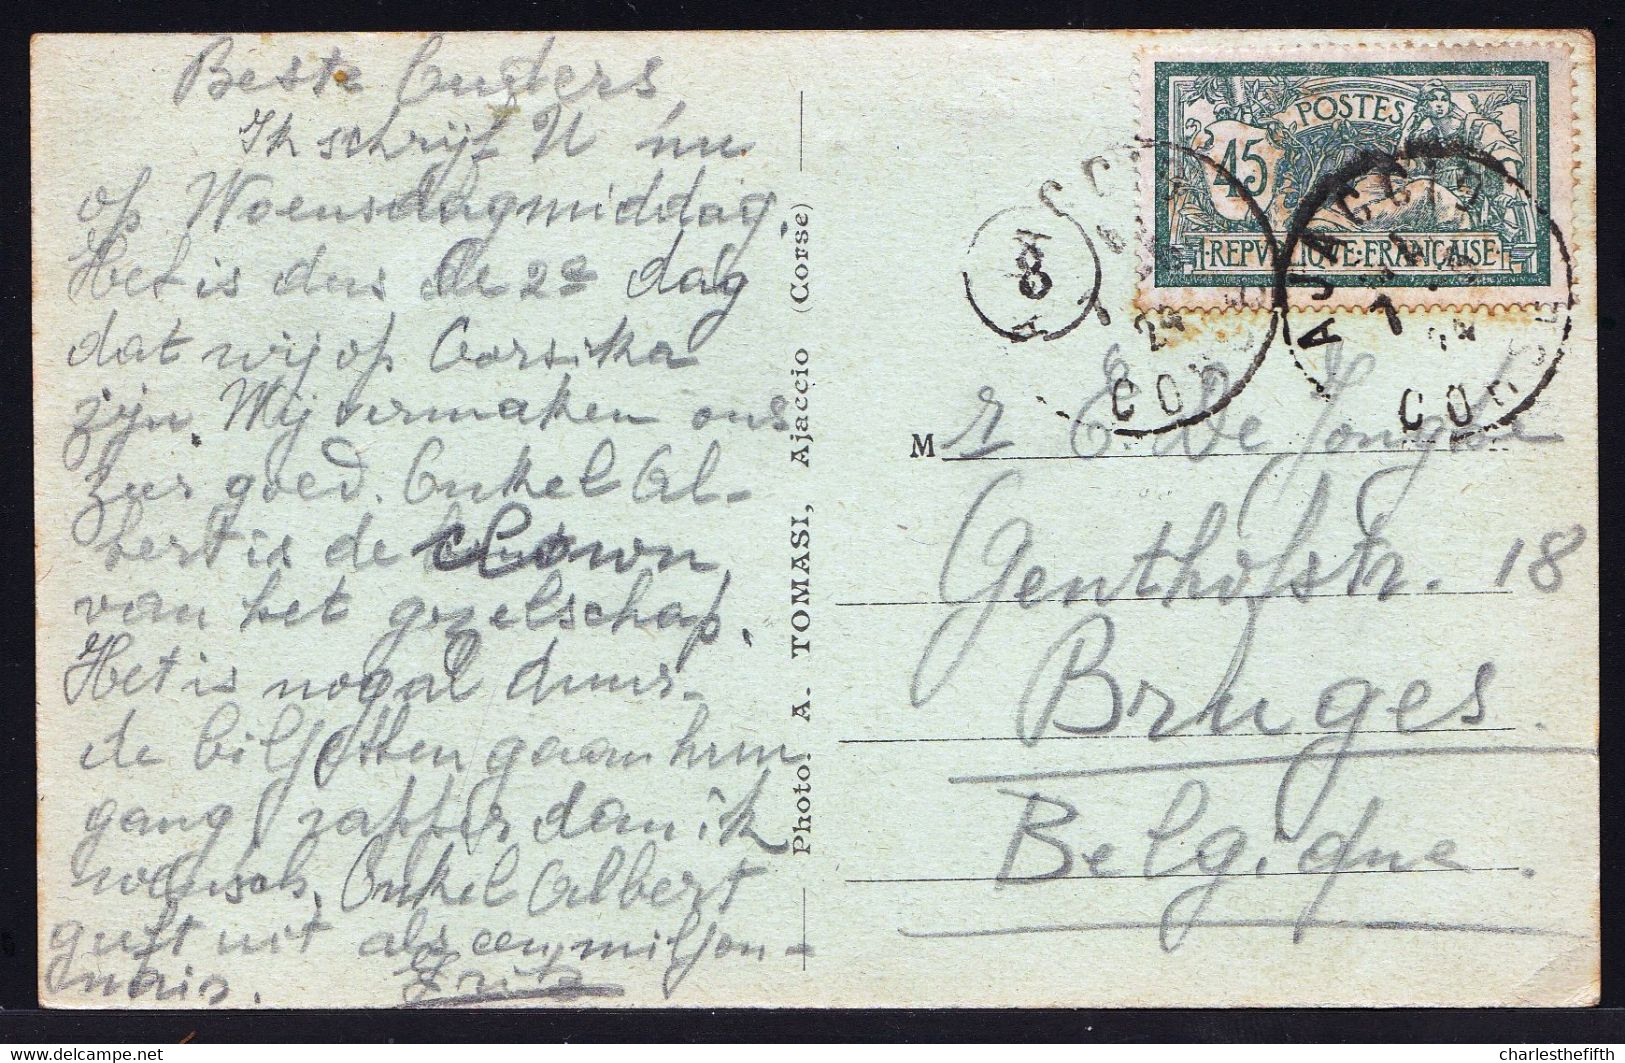 Beste Ouders,
Ik schrijf U nu
op Woensdagmiddag.
Het is dus de 2e dag
dat wij op Corsika
zijn. Wij vermaken ons
zeer goed. Onkel Al-
bert is de clown
van het gezelschap.
Het is nogal duur.
de biljetten gaan hun
gang rapper dan ik
wensch. Onkel Albert
geeft uit als een miljon-
nair. Fritz
Photo! A. TOMASI, Ajaccio (Corse)
POSTES
45
REPVBLIQVE FRANÇAISE
AJACCIO
24
COR
8
AJACCIO
7
24
CORSE
Mr E. De Jonghe
Genthofstr. 18
Bruges.
Belgique.
delcampe.net
charlesthefifth